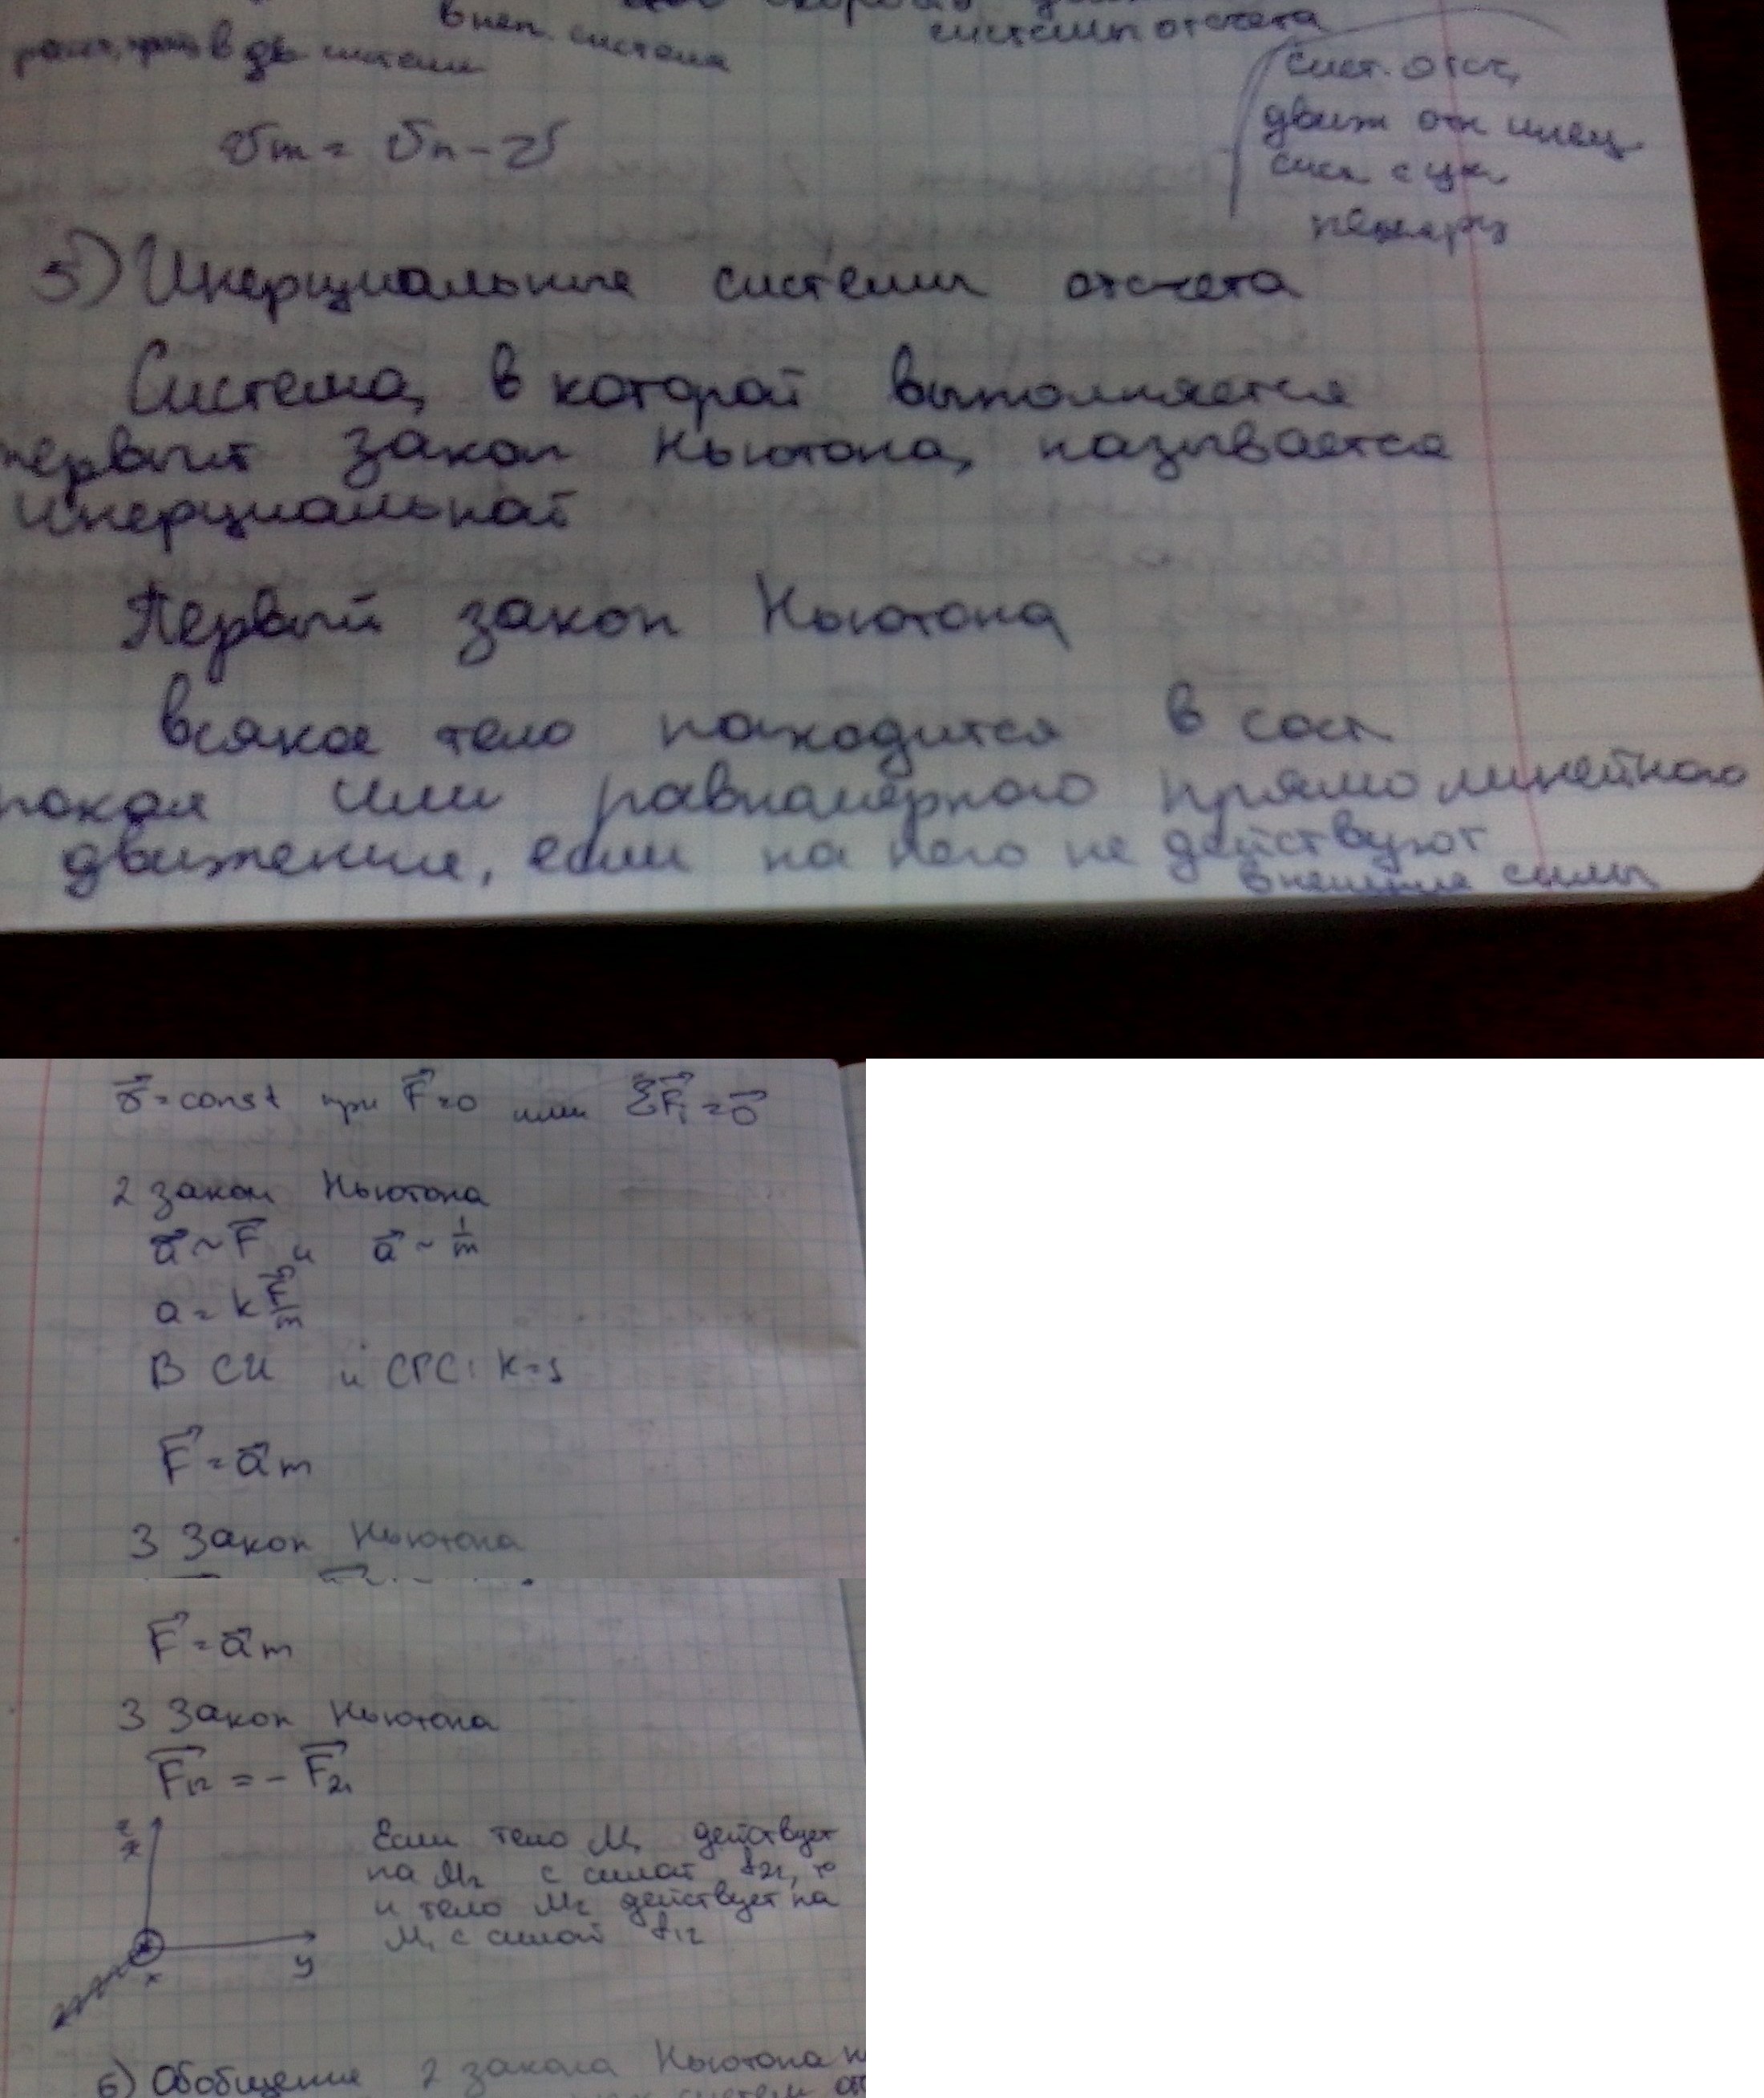 внеп. система
системы отсчета
в дв системе
сист. отсч,
движ отн инец.
v⃗m = v⃗n - v⃗
сист с ук.
5) Инерциальные системы отсчета
Система, в которой выполняется
первый закон Ньютона, называется
инерциальной
Первый закон Ньютона
Всякое тело находится в сост
покоя или равномерного прямолинейного
движения, если на него не действуют
внешние силы
v⃗ = const при F⃗=0 или ΣF⃗i = 0⃗
2 закон Ньютона
a⃗ ~ F⃗ и a⃗ ~ 1/m
a = k F⃗/m
В СИ и СГС: k=1
F⃗ = a⃗m
3 Закон Ньютона
F⃗ = a⃗m
3 Закон Ньютона
F⃗12 = - F⃗21
z
Если тело M1 действует
на M2 с силой f21, то
и тело M2 действует на
M1 с силой f12
y
x
6) Обобщение 2 закона Ньютона н
систем отс